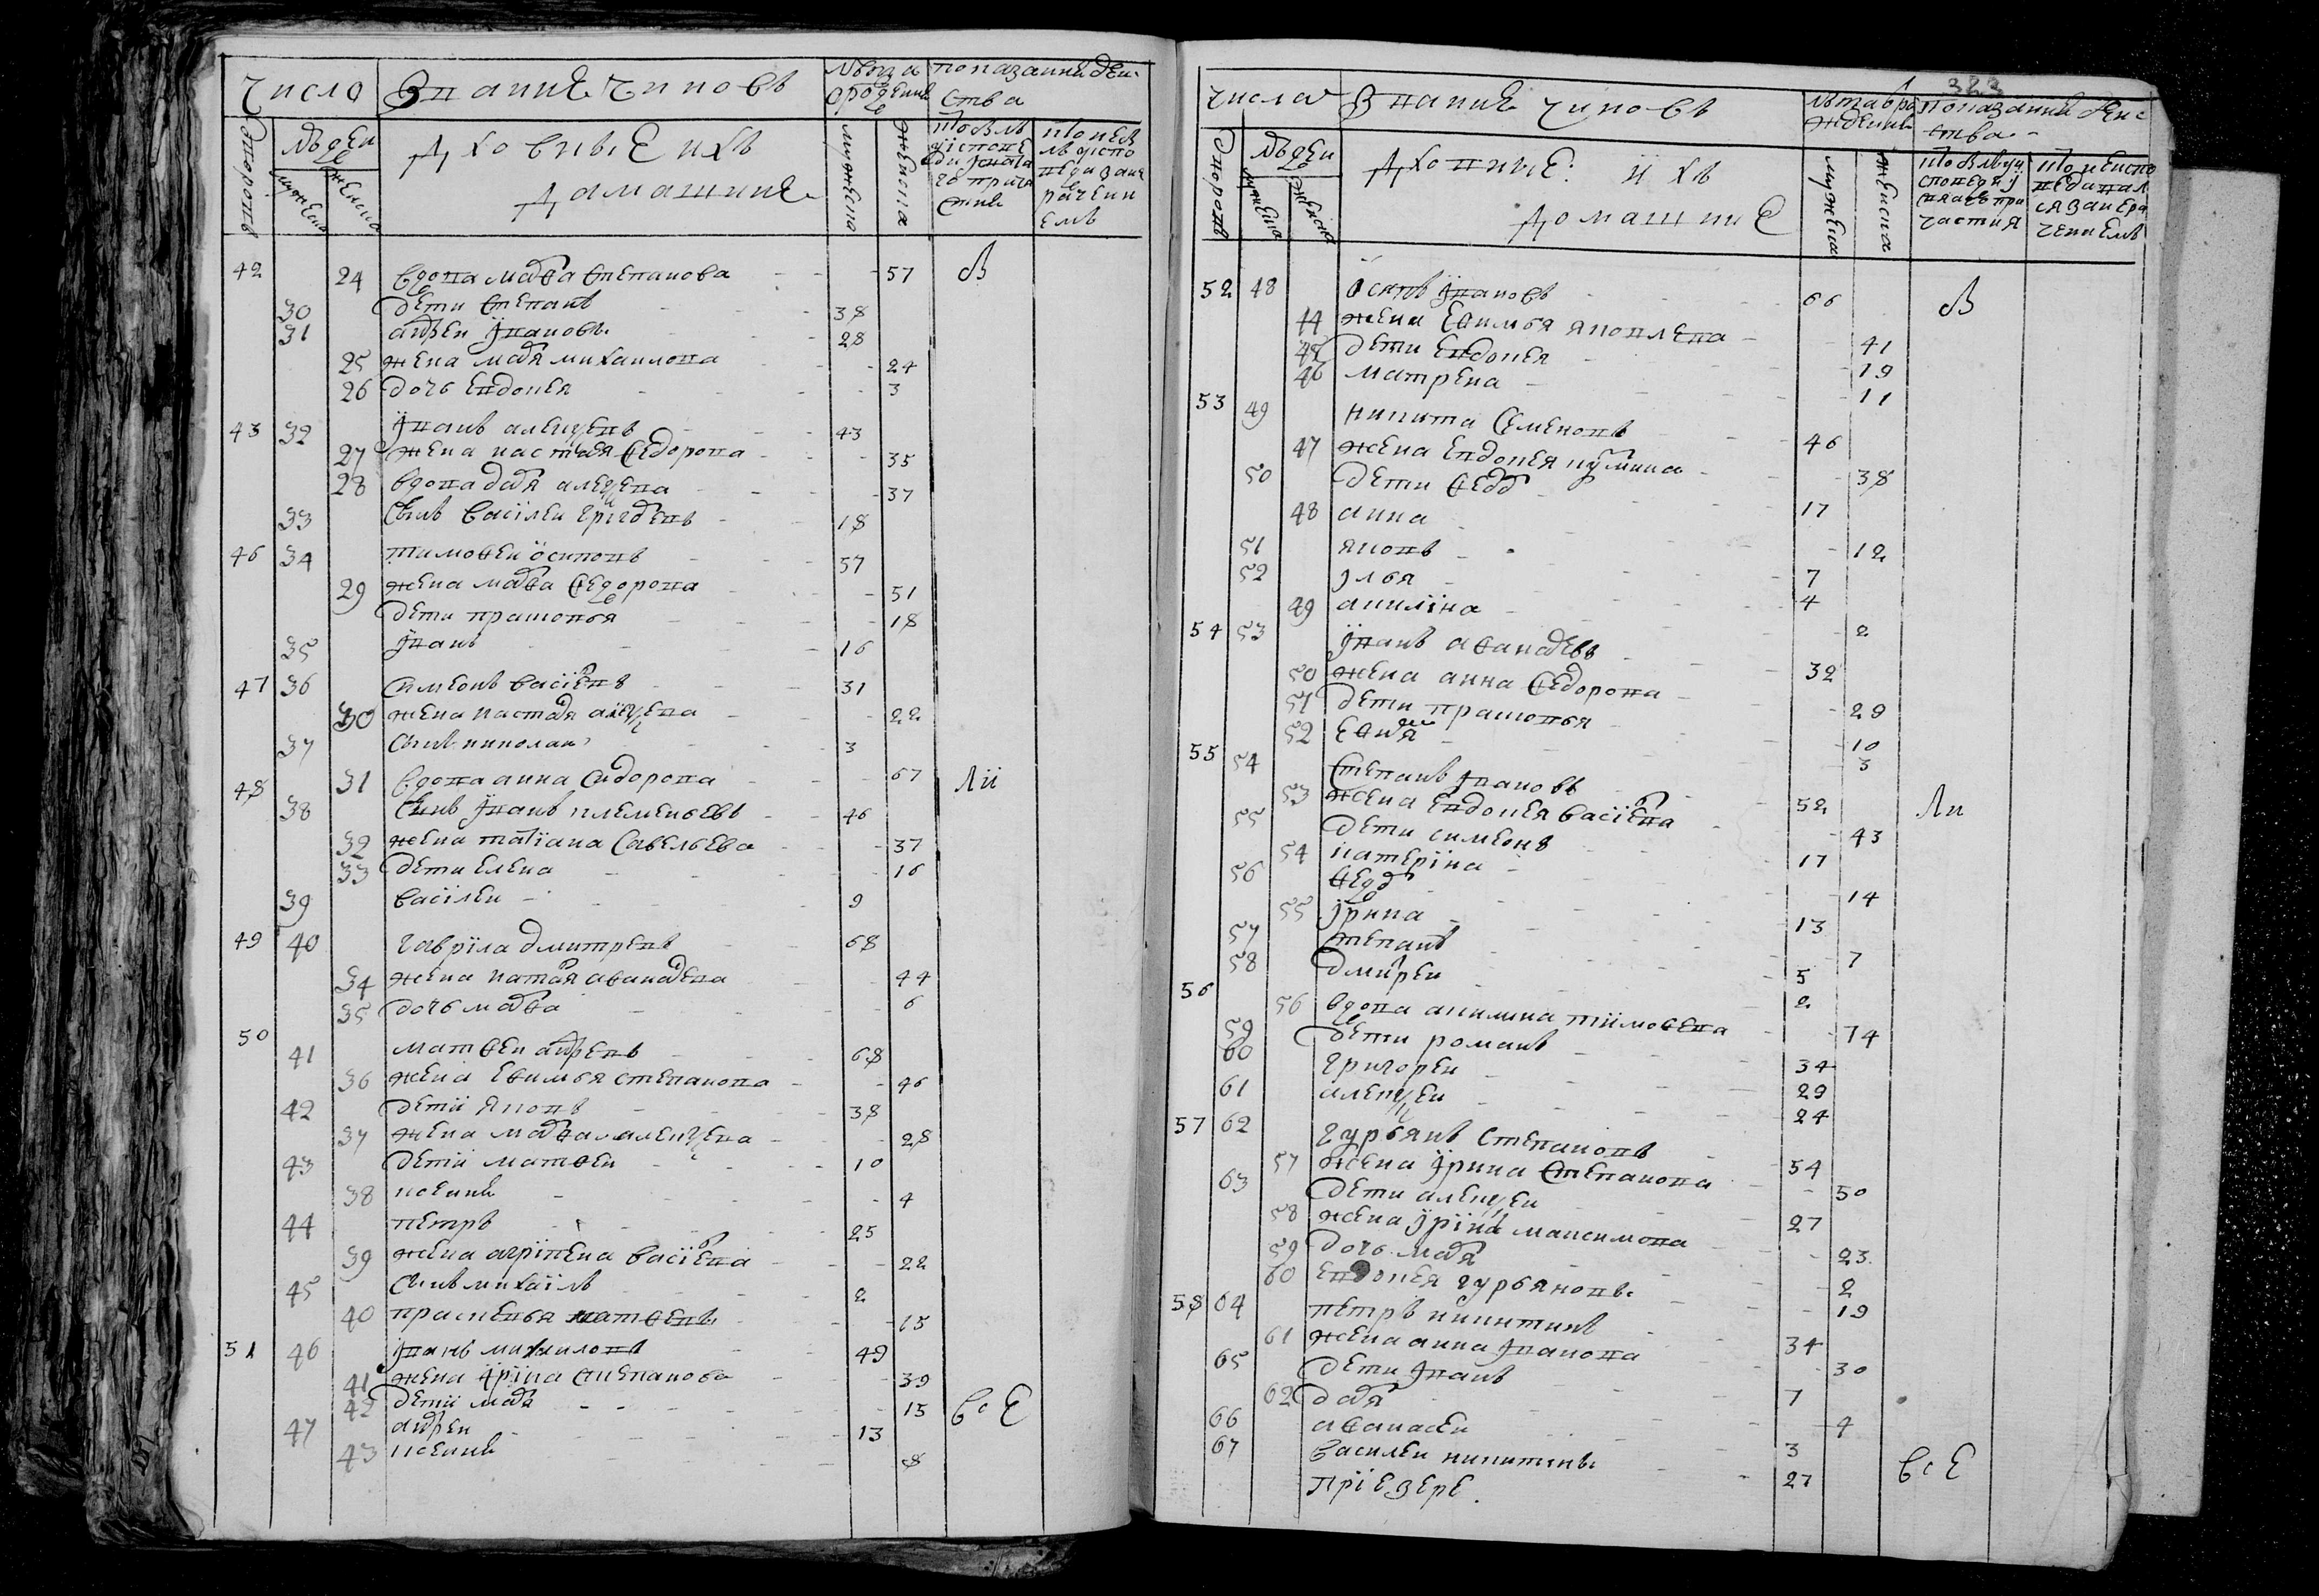 число Звание чиновъ лѣта рожденія показание действа
дворовъ людей духовные ихъ
мужеска женска домашние мужеска женска
42 24 вдова марфа степанова 57 В
30 дети степанъ 38
31 андреи ивановы 28
25 жена марья михаилова 24
26 дочь евдокея 3
43 32 иванъ алексеевъ 43
27 жена настасья федорова 35
28 вдова дарья алексеева 37
33 сынъ василеи григорьевъ 18
46 34 тимофеи осиповъ 57
29 жена марфа федорова 51
дети прасковья 18
35 иванъ 16
47 36 симеонъ васильевъ 31
30 жена настасья алексеева 22
37 сынъ николаи 3
48 31 вдова анна сидорова 67 Ли
38 сынъ иванъ клементьевъ 46
32 жена татиана савельева 37
33 дети елена 16
39 василеи 9
49 40 гаврила дмитревъ 68
34 жена наталья афанасьева 44
35 дочь марфа 6
50
41 матфеи андреевъ 68
36 жена ефимья степанова 46
42 дети яковъ 38
37 жена марфа алексеева 28
43 дети матфеи 10
38 ксения 4
44 петръ 25
39 жена агрипена васильева 22
45 сынъ михаилъ 2
40 прасковья матфеевы 15
51 46 иванъ михаиловъ 49
41 жена ирина степанова 39
42 дети марья 15 все
47 андреи 13
43 ксения 8
323
числа Звание чиновъ лѣта рождения показание действа
дворовъ людей духовные ихъ
мужеска женска домашние мужеска женска
52 48 осипъ ивановъ 66 В
44 жена ефимья яковлева 41
45 дети евдокея 19
46 матрена 11
53 49 никита семеновъ 46
47 жена евдокея кузмина 38
50 дети федоръ 17
48 анна 12
51 яковъ 7
52 илья 4
49 акилина 2
54 53 иванъ афанасьевъ 32
50 жена анна федорова 29
51 дети прасковья 10
52 ефимья 3
55 54 степанъ ивановъ 52 Ли
53 жена евдокея васильева 43
55 дети симеонъ 17
54 катерина 14
56 федоръ 13
55 ирина 7
57 степанъ 5
58 дмитреи 2
56 56 вдова акилина тимофеева 74
59 дети романъ 34
60 григореи 29
61 алексеи 24
57 62 гурьянъ степановъ 54
57 жена ирина степанова 50
63 дети алексеи 27
58 жена ирина максимова 23
59 дочь марья 2
60 евдокея гурьяновы 19
58 64 петръ никитинъ 34
61 жена анна иванова 30
65 дети иванъ 7
62 дарья 4
66 афанасеи 3
67 василеи никитинъ 27 все
приезере